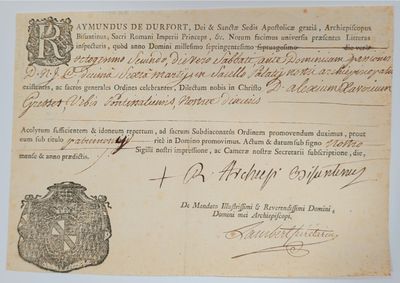 RAYMUNDUS DE DURFORT, Dei & Sanctæ Sedis Apostolicæ gratiâ, Archiepiscopus
Bisuntinus, Sacri Romani Imperii Princeps, &c. Notum facimus universis præsentes Litteras
inspecturis, quòd anno Domini millesimo septingentesimo septuagesimo die verò
octogesimo Secundo, die vero Sabbati, ante Dominicam
D. N. J. C. Sexta martij in Sacello Palatij nostri archiepiscopalis
existentes, ac sacros generales Ordines celebrantes, Dilectum nobis in Christo D. alexium
Urbis Pontarliensis Nostræ diœcesis
Acolytum sufficientem & idoneum repertum, ad sacrum Subdiaconatûs Ordinem promovendum duximus, prout
eum sub titulo patrimonij ritè in Domino promovimus. Actum & datum sub signo nostro
Sigilli nostri impressione, ac Cameræ nostræ Secretarii subscriptione, die,
mense & anno prædictis.
+ R. Archiepi Bisuntinus
De Mandato Illustrissimi & Reverendissimi Domini,
Domini mei Archiepiscopi,
Lambert secretarius